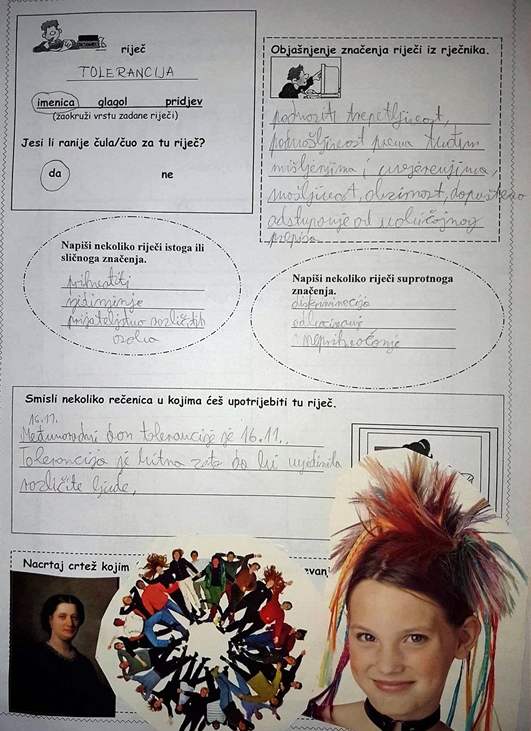 riječ
TOLERANCIJA
imenica glagol pridjev
(zaokruži vrstu zadane riječi)
Jesi li ranije čula/čuo za tu riječ?
da ne
Objašnjenje značenja riječi iz rječnika.
podnositi trepetljivost,
podnošljivost prema tuđim
mišljenjima i uvjerenjima,
snošljivost, obzirnost, dopušteno
odstupanje od uobičajnog
propisa
Napiši nekoliko riječi istoga ili
sličnoga značenja.
prihvatiti
sjedinjenje
prijateljstvo različitih
osoba
Napiši nekoliko riječi suprotnoga
značenja.
diskriminacija
odbacivanje
neprihvaćanje
Smisli nekoliko rečenica u kojima ćeš upotrijebiti tu riječ.
16.11.
Međunarodni dan tolerancije je 16.11..
Tolerancija je bitna zato da bi ujedinila
različite ljude.
Nacrtaj crtež kojim